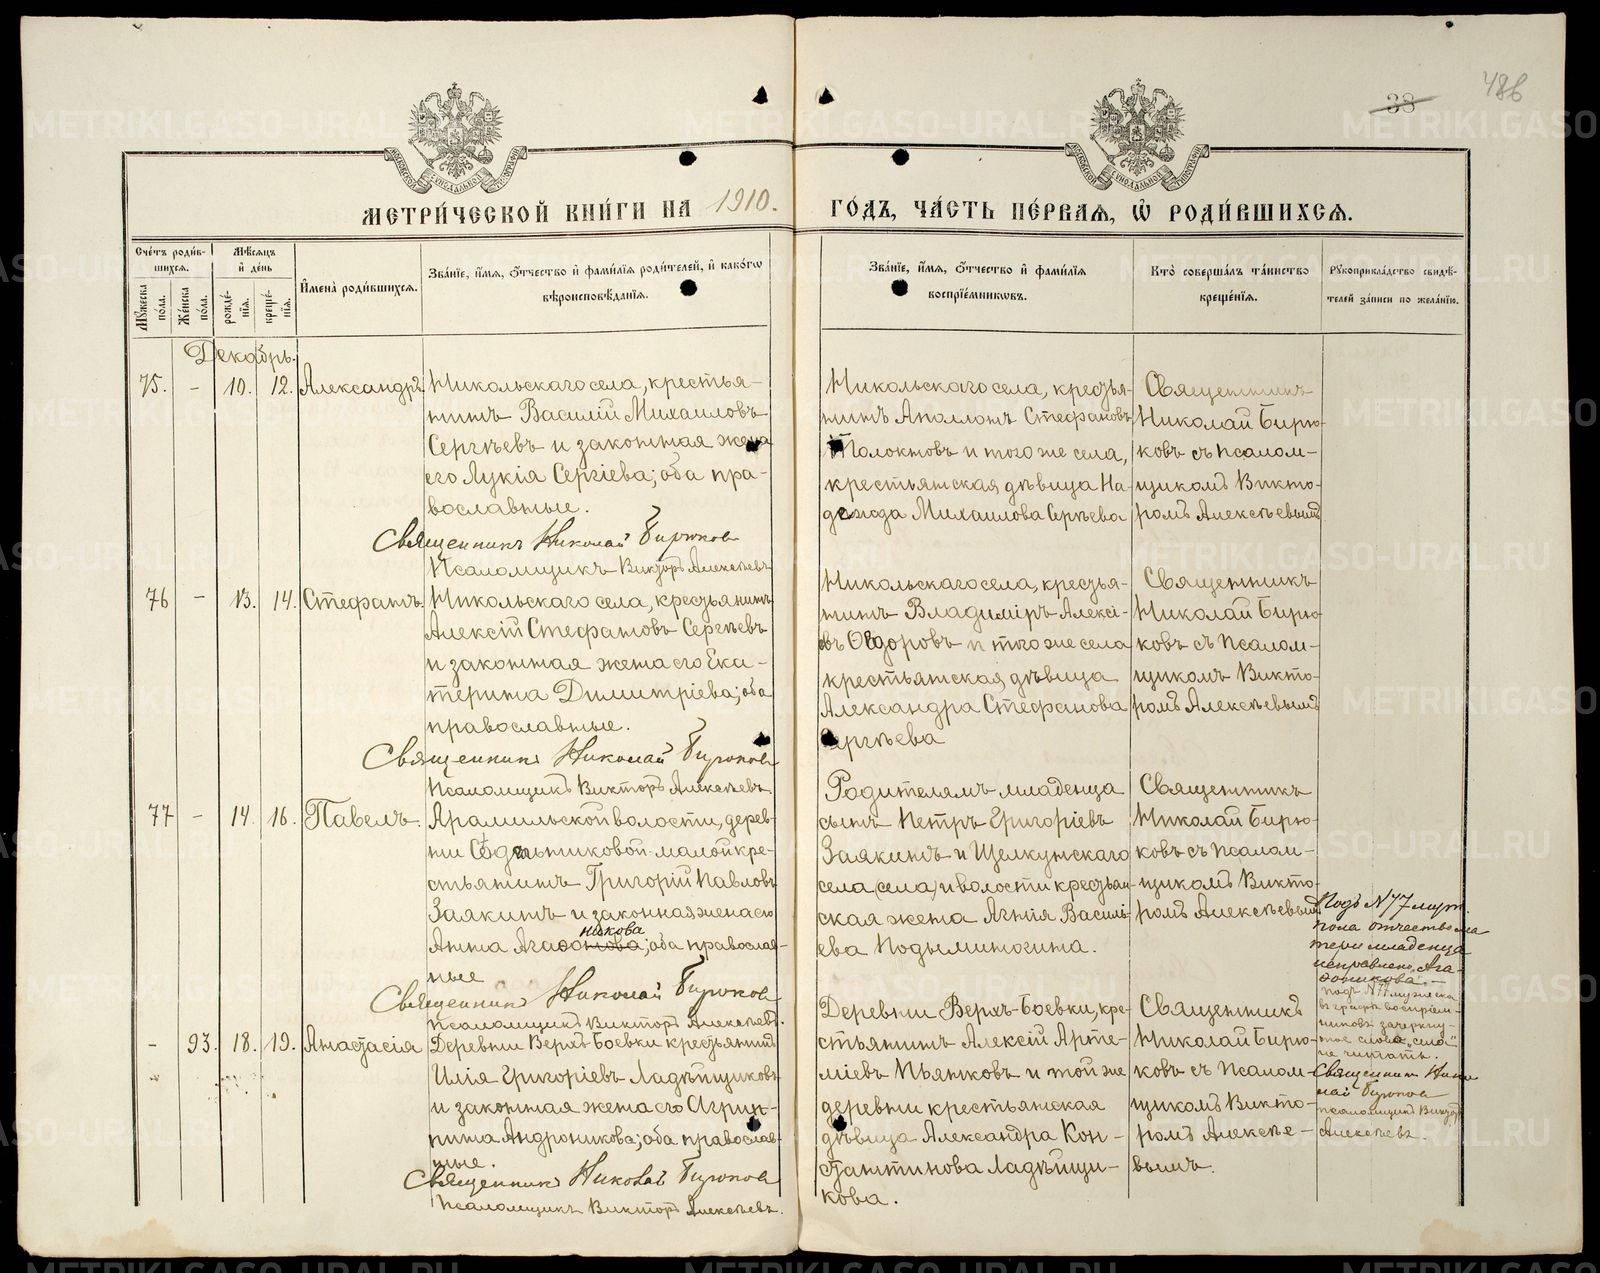 38
486
МОСКОВСКОЙ СѴНОДАЛЬНОЙ ТИПОГРАФІИ
МОСКОВСКОЙ СѴНОДАЛЬНОЙ ТИПОГРАФІИ
МЕТРИ́ЧЕСКОЙ КНИ́ГИ НА 1910.
ГО́ДЪ, ЧА́СТЬ ПЕ́РВАѦ, Ѡ҆ РОДИ́ВШИХСѦ.
Сче́тъ роди́в-
шихсѧ.
Мꙋ́жеска по́ла.
Же́нска по́ла.
Мѣ́сѧцъ
и҆ де́нь
рожде́-
нїѧ.
креще́-
нїѧ.
И҆мена̀ роди́вшихсѧ.
Зва́нїе, и҆́мѧ, ѻ҆́тчество и҆ фами́лїѧ роди́телей, и҆ како́гѡ
вѣроисповѣ́данїѧ.
Зва́нїе, и҆́мѧ, ѻ҆́тчество и҆ фами́лїѧ
воспрїе́мникѡвъ.
Кто̀ соверша́лъ та́инство
креще́нїѧ.
Рꙋкоприкла́дство свидѣ́-
телей за́писи по жела́нїю.
Декабрь.
75.
-
10.
12.
Александръ
Никольскаго села, крестья-
нинъ Василій Михаиловъ
Сергѣевъ и законная жена
его Лукія Сергіева; оба пра-
вославные.
Священникъ Николай Бирюковъ
Псаломщикъ Викторъ Алексѣевъ
Никольскаго села, крестья-
нинъ Аполлонъ Стефановъ
Толоктовъ и того же села,
крестьянская дѣвица На-
дежда Михаилова Сергѣева
Священникъ
Николай Бирю-
ковъ съ псалом-
щикомъ Викто-
ромъ Алексѣевымъ
76
-
13.
14.
Стефанъ.
Никольскаго села, крестьянинъ
Алексій Стефановъ Сергѣевъ
и законная жена его Ека-
терина Димитріева; оба
православные.
Священникъ Николай Бирюковъ
Псаломщикъ Викторъ Алексѣевъ
Никольскаго села, крестья-
нинъ Владиміръ Алексі-
евъ Ѳедоровъ и того же села
крестьянская дѣвица
Александра Стефанова
Сергѣева
Священникъ
Николай Бирю-
ковъ съ псалом-
щикомъ Викто-
ромъ Алексѣевымъ
77
-
14.
16.
Павелъ.
Арамильской волости, дерев-
ни Седельниковой-малой кре-
стьянинъ Григорій Павловъ
Заякинъ и законная жена его
никова
Анна Агаѳонова; оба православ-
ные
Священникъ Николай Бирюковъ
Псаломщикъ Викторъ Алексѣевъ.
Родителямъ младенца
сынъ Петръ Григоріевъ
Заякинъ и Щелкунскаго
села (села) и волости крестьян-
ская жена Агнія Василі-
ева Подыминогина.
Священникъ
Николай Бирю-
ковъ съ псалом-
щикомъ Викто-
ромъ Алексѣевымъ
Подъ N 77 муж.
пола отчество ма-
тери младенца
исправлено „Ага-
ѳоникова".-
подъ N 77 мужеска
въ графѣ воспріем-
никовъ зачеркну-
тое слово „села"
не читать.
Священникъ Нико-
лай Бирюковъ
псаломщикъ Викторъ
Алексѣевъ.
-
93.
18.
19.
Анастасія
Деревни Верхъ-Боевки крестьянинъ
Илія Григоріевъ Ладѣйщиковъ
и законная жена его Агрип-
пина Андроникова; оба православ-
ные.
Священникъ Николай Бирюковъ
Псаломщикъ Викторъ Алексѣевъ.
Деревни Верхъ-Боевки, кре-
стьянинъ Алексій Арте-
міевъ Пьянковъ и той же
деревни крестьянская
дѣвица Александра Кон-
стантинова Ладѣйщи-
кова.
Священникъ
Николай Бирю-
ковъ съ псалом-
щикомъ Викто-
ромъ Алексѣе-
вымъ.
METRIKI.GASO-URAL.RU